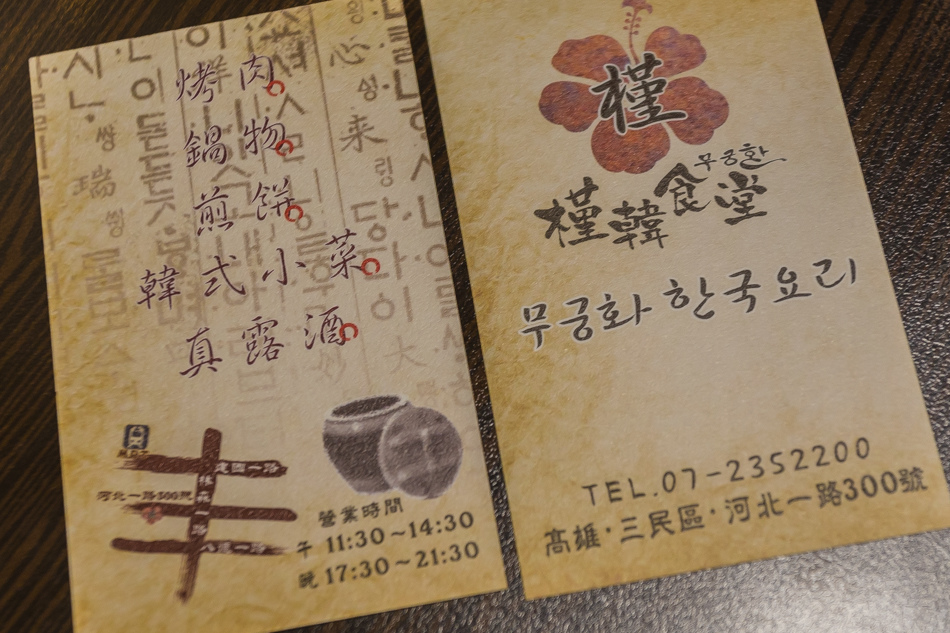 烤肉
鍋物
煎餅
韓式小菜
真露酒
建國一路
河北一路300號
林森一路
八德一路
營業時間
午 11:30~14:30
晚 17:30~21:30
槿
무궁화
槿韓食堂
무궁화 한국요리
TEL.07-2352200
高雄·三民區·河北一路300號